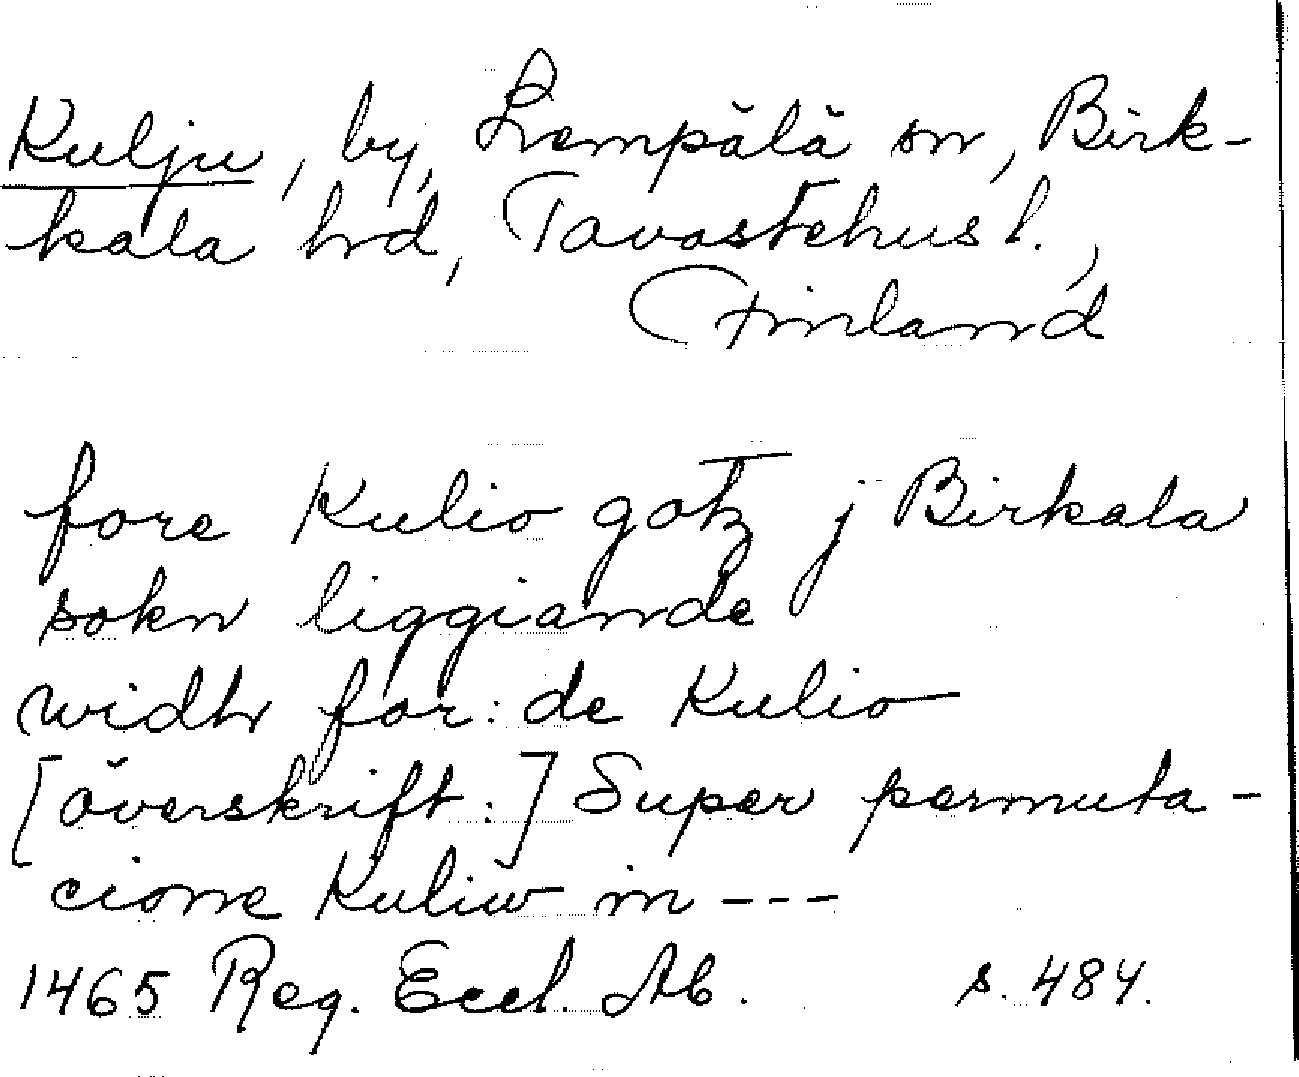 Kulju, by, Lempälä sn, Birk-
kala hrd, Tavastehus l.,
Finland
fore Kulio gotz j Birkala
sokn liggiande
widhr for: de Kulio
[överskrift:] Super permuta-
cione Kuliw in ---
1465 Reg. Eccl. Ab. s. 484.